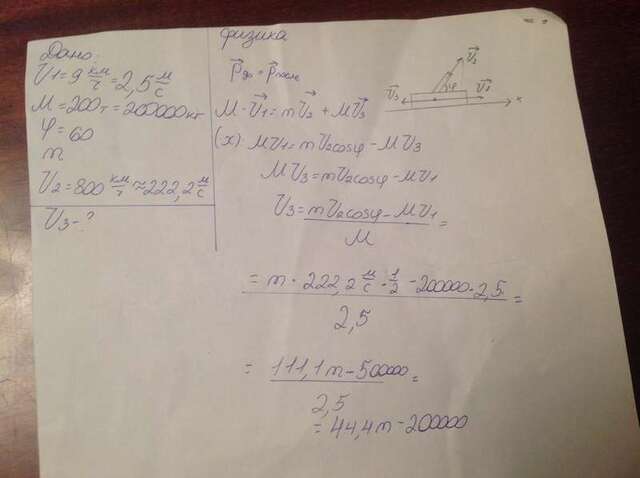 Дано:
V1=9 км/ч=2,5 м/с
M=200т=200000кг
φ=60
m
V2=800 км/ч≈222,2 м/с
V3-?
физика
P⃗до=P⃗после
M·V⃗1=mV⃗2+MV⃗3
(x): MV1=mV2cosφ-MV3
MV3=mV2cosφ-MV1
V3=(mV2cosφ-MV1)/M=
=(m·222,2 м/с·1/2-200000·2,5)/2,5=
=(111,1m-500000)/2,5=
=44,4m-200000
V⃗2
V⃗3
φ
V⃗1
x